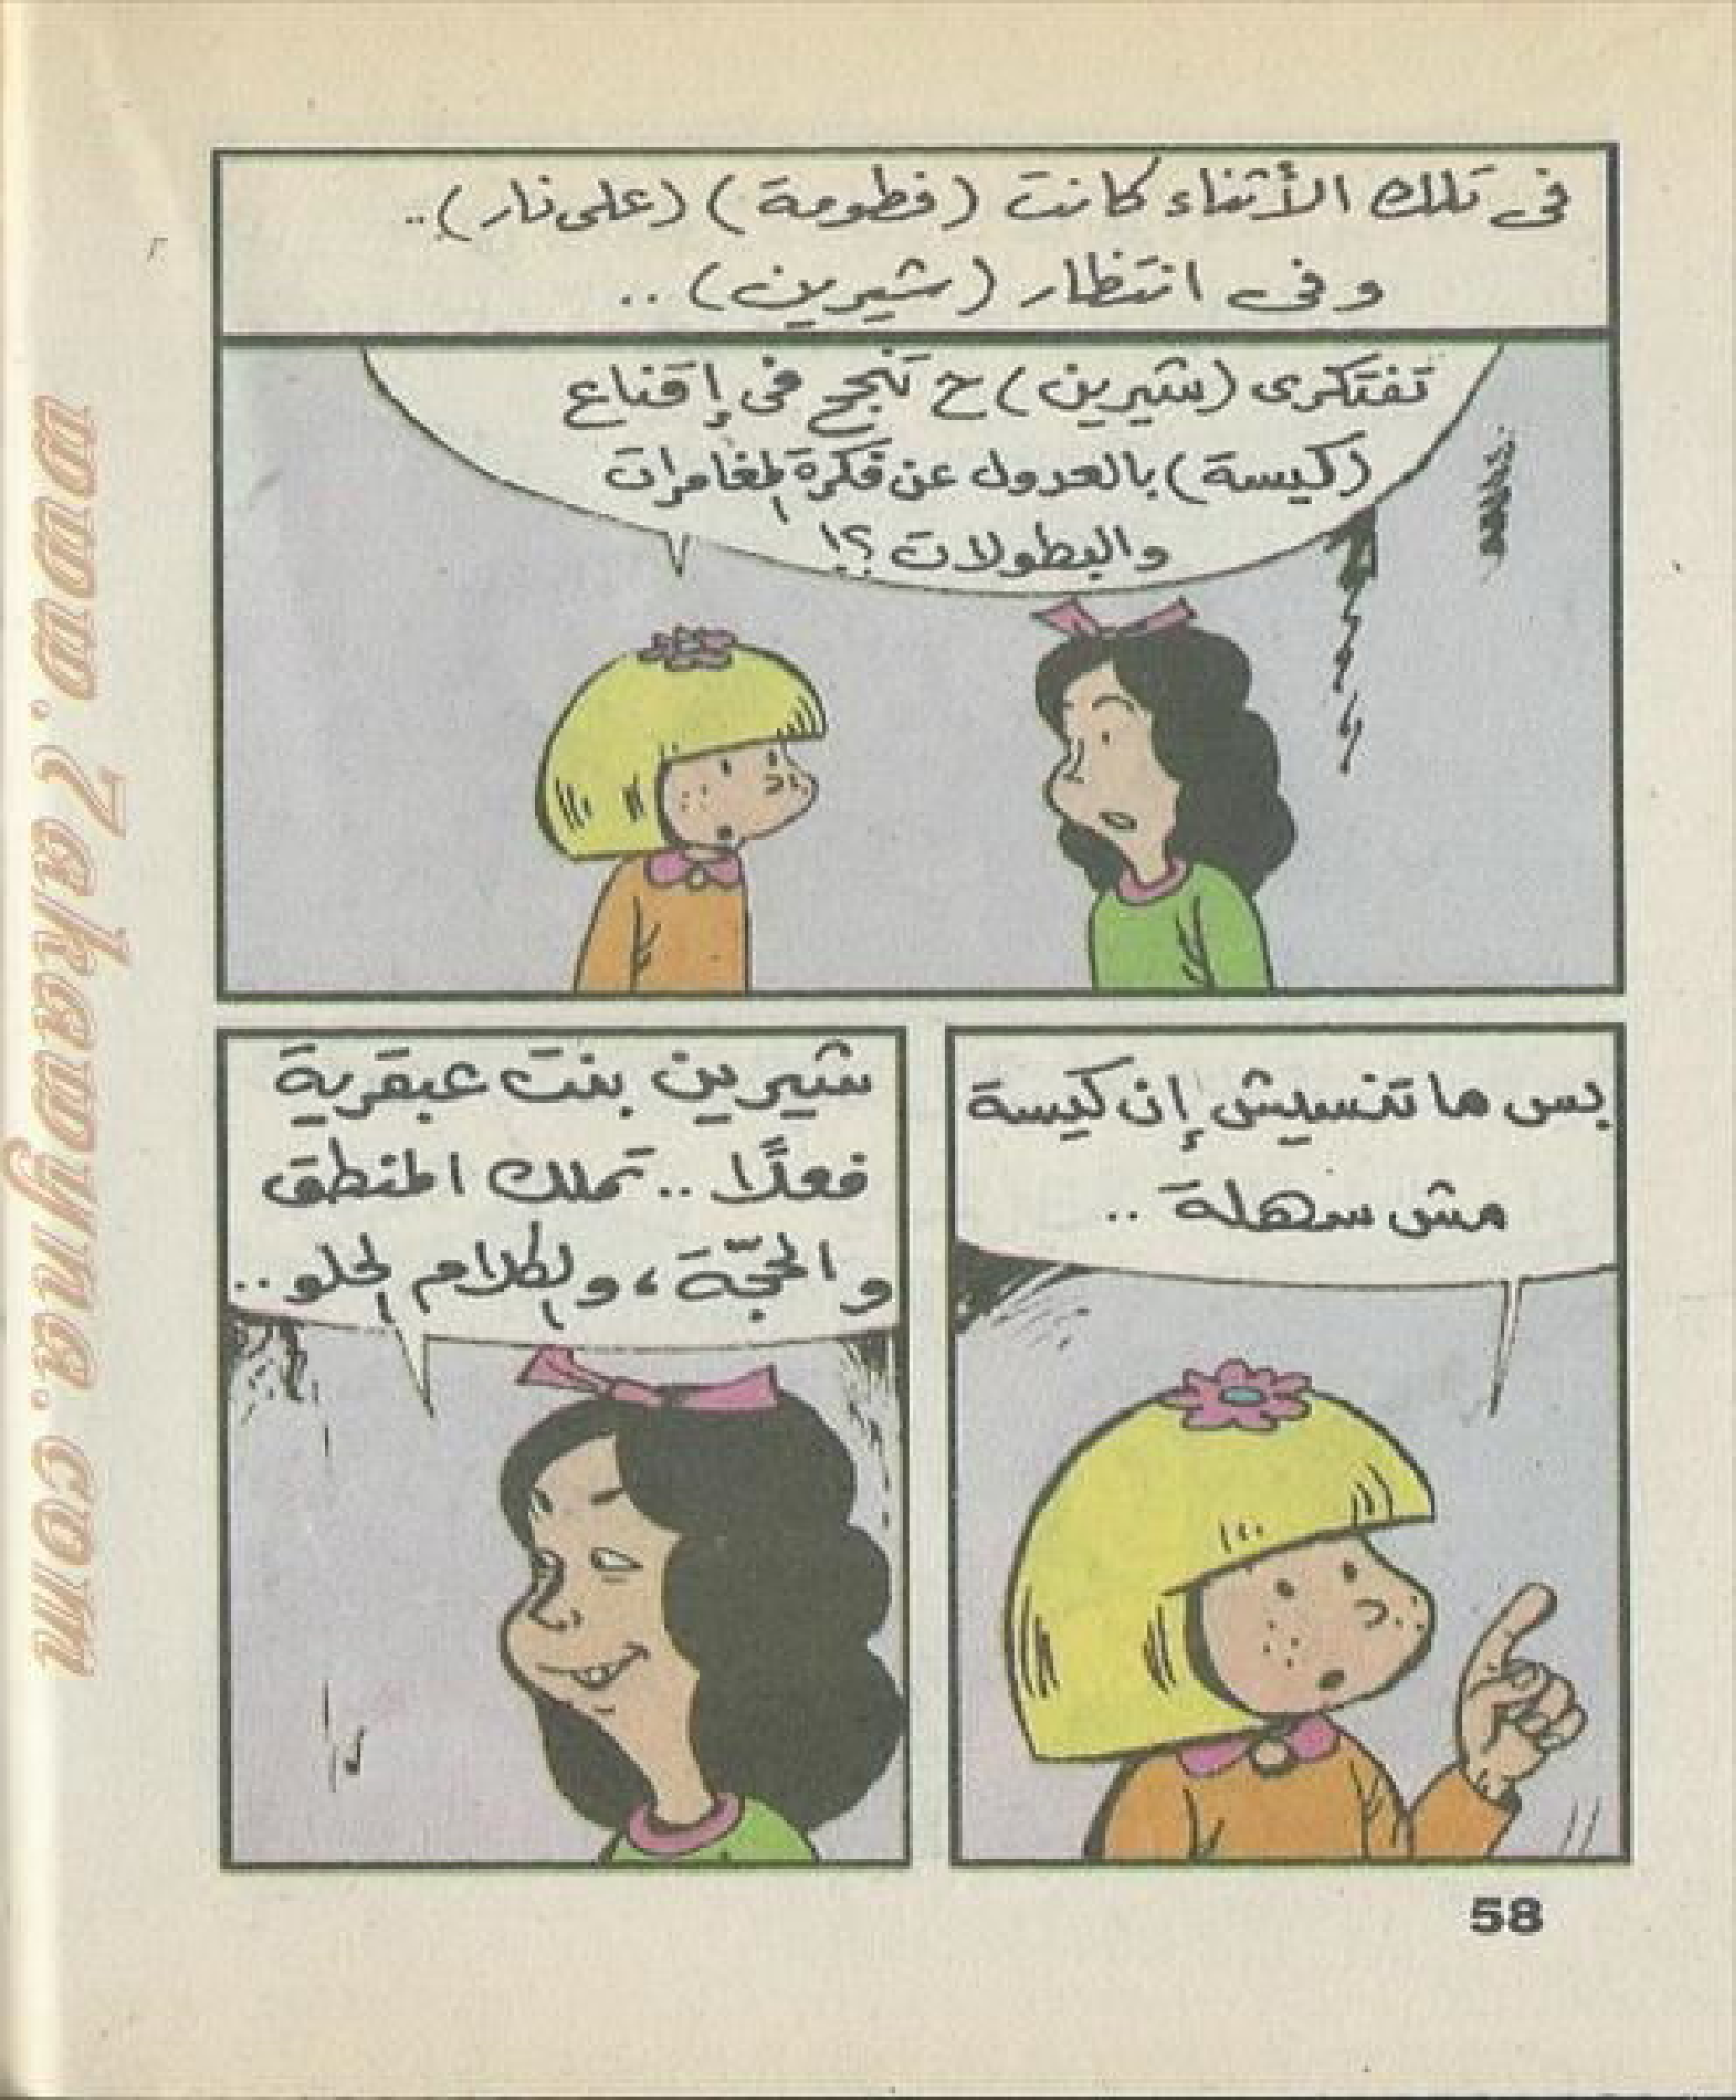 في تلك الأثناء كانت (فطومة) (على نار)..
وفى انتظار (شيرين) ..
تفتكرى (شيرين) ح تنجح فى إقناع
(كيسة) بالعدول عن فكرة المغامرات
والبطولات ؟!
بس ما تنسيش إن كيسة
مش سهلة ..
شيرين بنت عبقرية
فعلًا .. تملك المنطق
والحجّة ، والكلام الحلو ..
58
www.7akawyuna.com